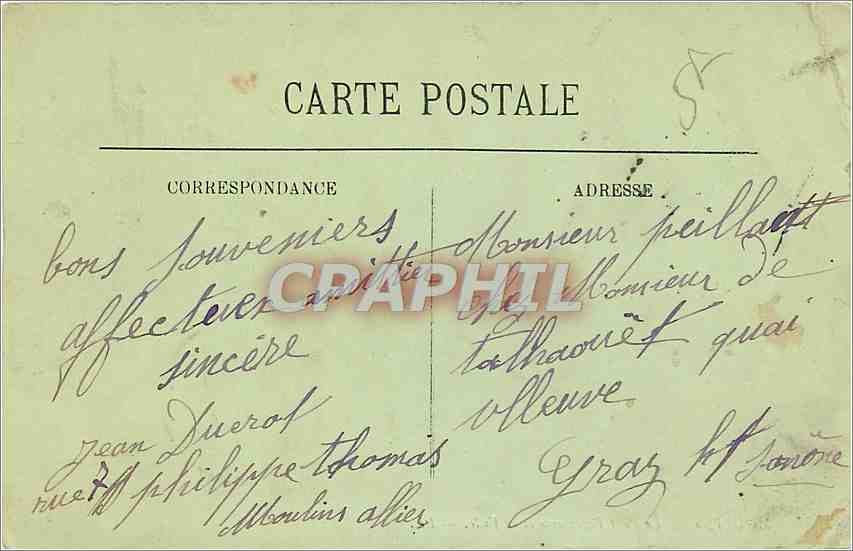 CARTE POSTALE
CORRESPONDANCE
bons souveniers
affectueux amitier
sincére
Jean Ducrot
rue philippe thomas
Moulins allier
ADRESSE
Monsieur peillault
chez Monsieur de
talhaouët quai
villeuve
Gray ht saône
CPAPHIL